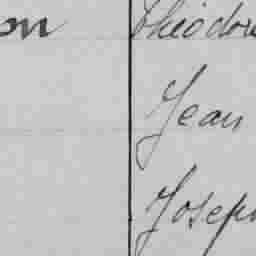 on Théodore
Jean
Joseph